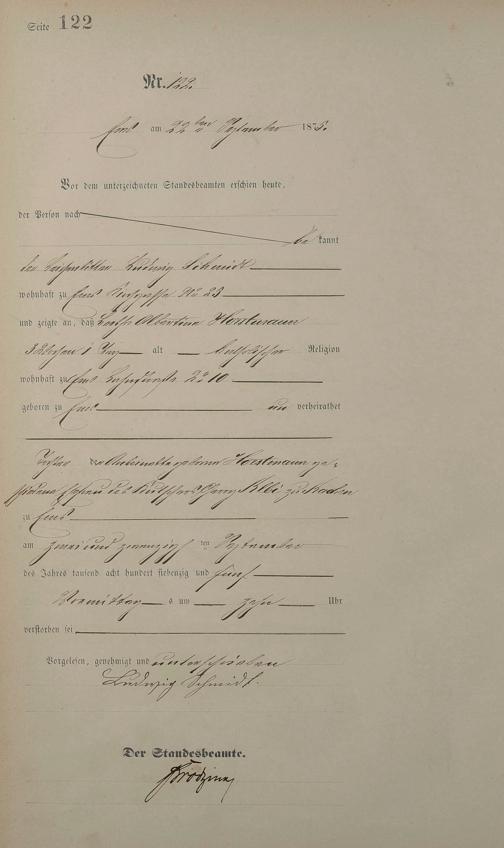 Seite 122
Nr. 122.
Ems am 22ten September 1875.
Vor dem unterzeichneten Standesbeamten erschien heute,
der Person nach
be kannt
der Ludwig Schmidt
wohnhaft zu Ems No 23
und zeigte an, daß Albertine Horstmann
3 Wochen 1 Tag alt katholischer Religion
wohnhaft zu Ems No 10
geboren zu Ems un verheirathet
Tochter der geborene Horstmann ge-
Ehefrau des Georg zu
zu Ems
am zwei und zwanzig ten September
des Jahres tausend acht hundert siebenzig und fünf
Vormittag s um zehn Uhr
verstorben sei
Vorgelesen, genehmigt und unterschrieben
Ludwig Schmidt.
Der Standesbeamte.